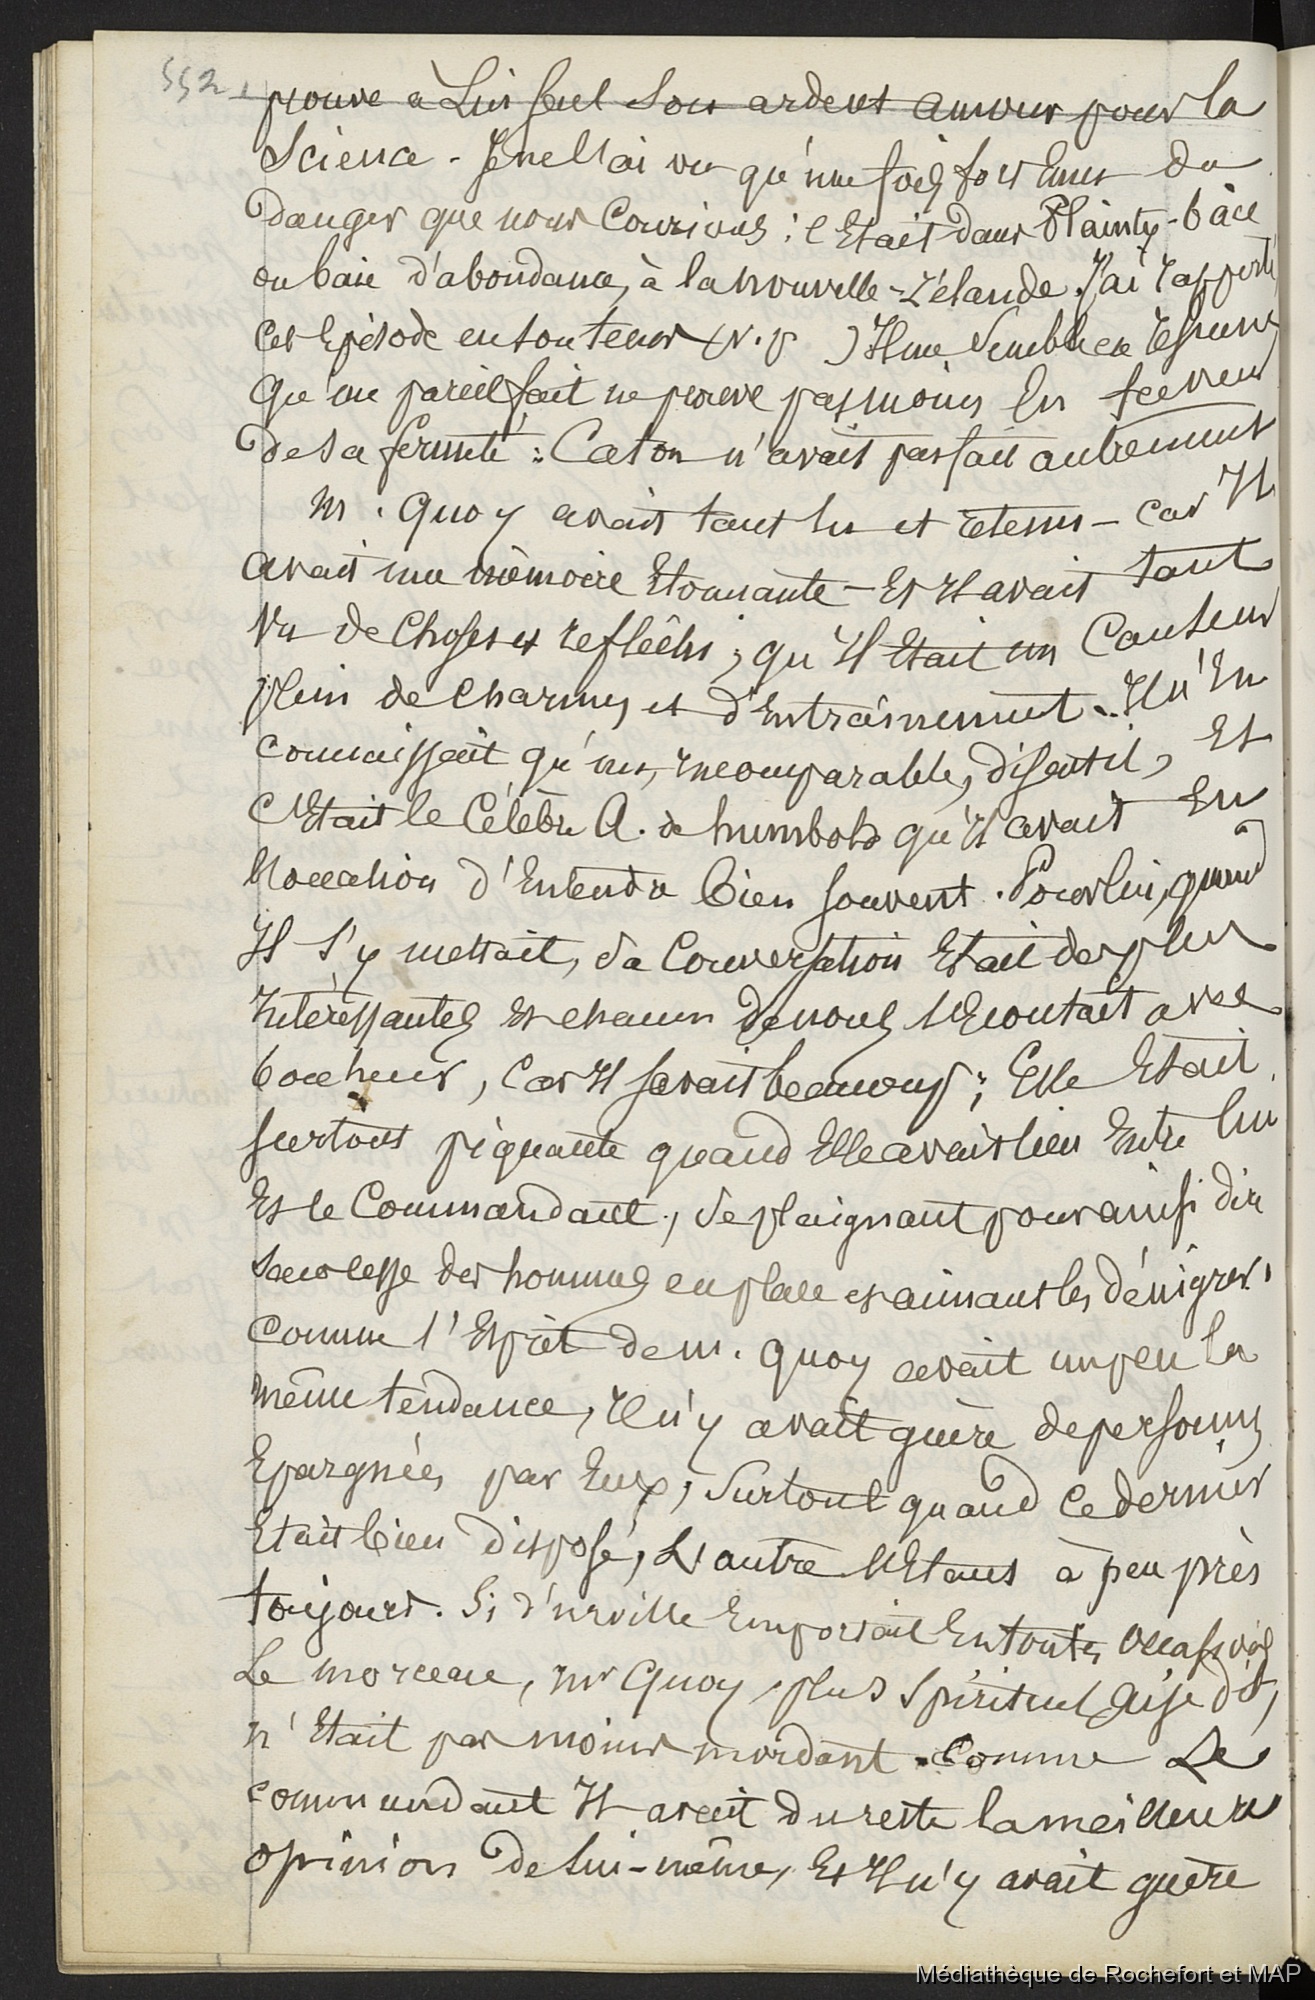 552
prouve à Lui seul Son ardent amour pour la
Science - Je ne l'ai vu qu'une fois fort Emu du
Danger que nous Courions : c'Etait dans Plainty-bâie
ou baie d'abondance, à la nouvelle-Zélande. J'ai rapporté
cet Episode en son tems (v. p ) Il me Semble en résumé
Qu'un pareil fait ne prouve pas moins En faveur
de sa fermeté : Caton n'avait pas fait autrement
M. Quoy avait tant lu et retenu - car Il
avait une mémoire Etonnante - Et Il avait tant
Vu de Choses et réflêchi ; qu'Il Etait un Causeur
plein de charmes et d'Entraînement. Il n'En
connaissait qu'un, Incomparable, disait il, Et
c'Etait le Célèbre A. de humbold qu'Il avait Eu
l'occasion d'Entendre bien souvent. Pour lui, quand
Il s'y mettait, Sa Conversation Etait des plus
Intéressantes Et chacun de nous l'Ecoutait avec
bonheur, Car Il savait beaucoup ; Elle Etait
surtout piquante quand Elle avait lieu Entre lui
Et le Commandant, Se plaignant pour ainsi dire
sans cesse des hommes en place et aimant les dénigrer.
Comme l'Esprit de m. Quoy avait un peu la
même tendance, Il n'y avait guère de personnes
Epargnées par Eux, Surtout quand ce dernier
Etait bien disposé, L'autre l'Etant à peu près
toujours. Si d'urville Emportait En toutes occasions
Le morceau, Mr Quoy, plus Spirituel ai-je dit,
n'Etait pas moins mordant. Comme Le
commandant Il avait du reste la meilleure
opinion de lui-même, Et Il n'y avait guère
Médiathèque de Rochefort et MAP